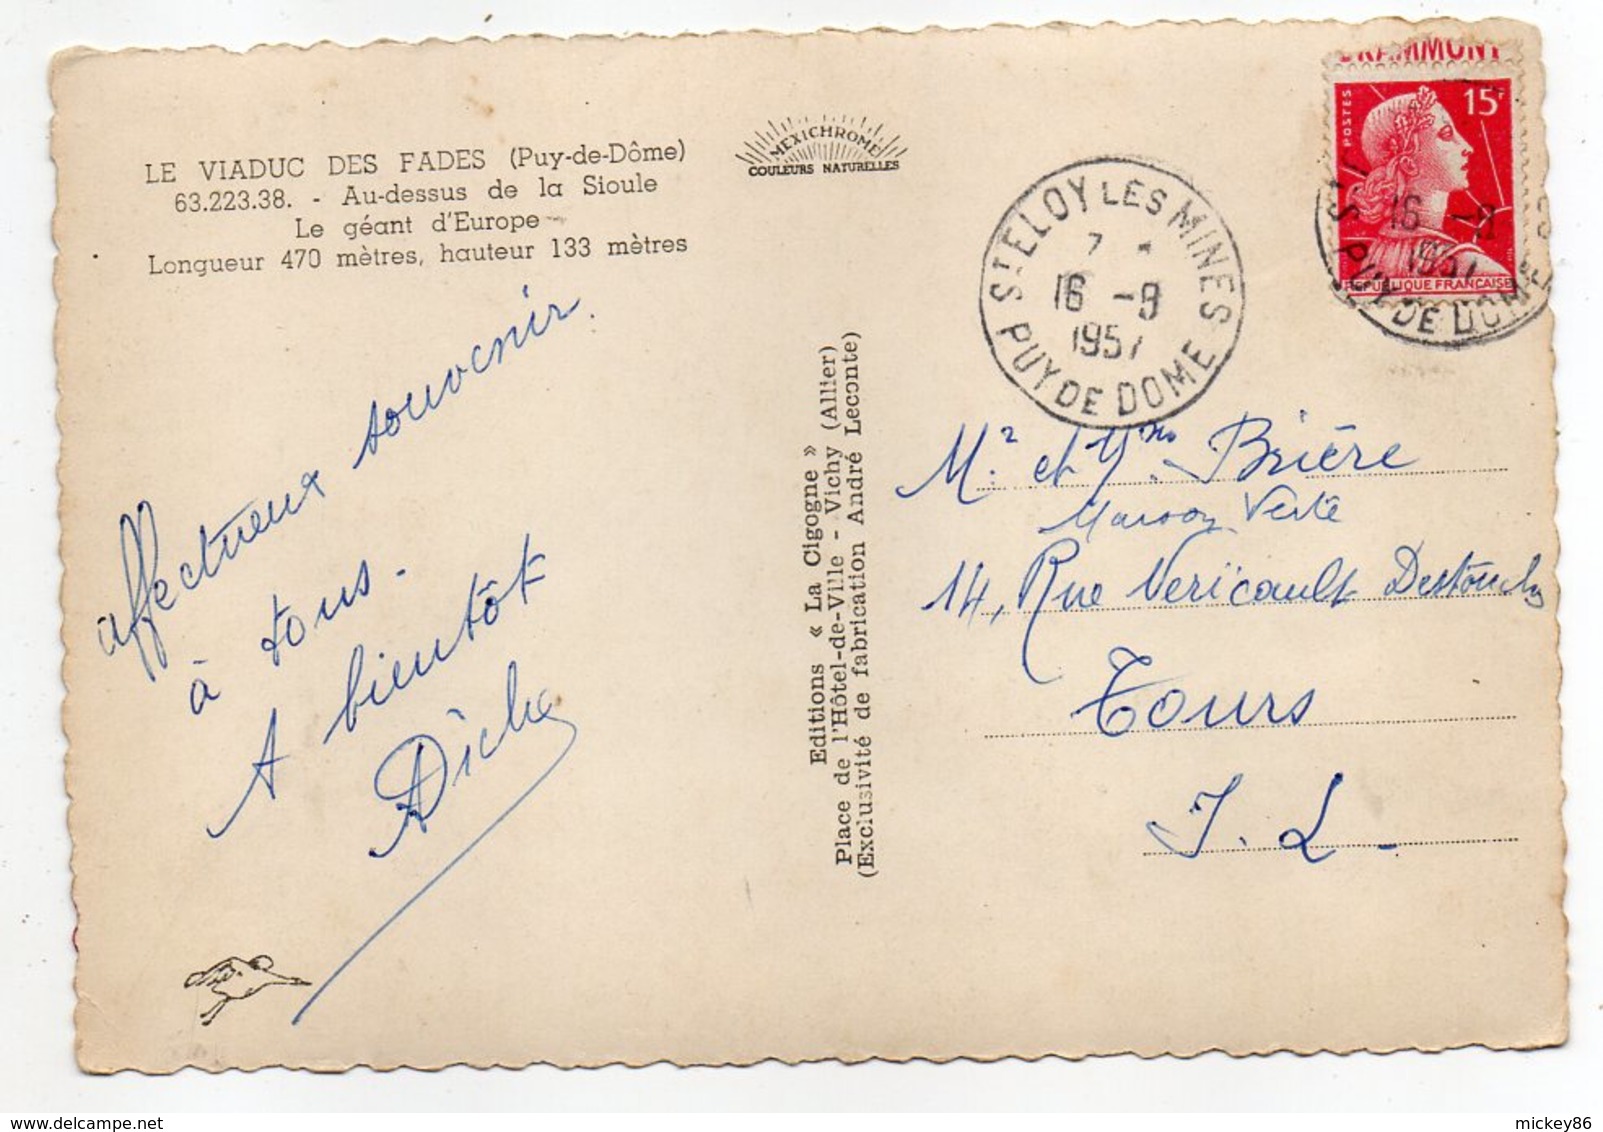 LE VIADUC DES FADES (Puy-de-Dôme)
63.223.38. - Au-dessus de la Sioule
Le géant d'Europe
Longueur 470 mètres, hauteur 133 mètres
MEXICHROME
COULEURS NATURELLES
affectueux souvenir.
à tous.
A bientôt
Editions « La Cigogne »
Place de l'Hôtel-de-Ville - Vichy (Allier)
(Exclusivité de fabrication André Leconte)
ST ELOY LES MINES
7 *
16 -9
1957
PUY DE DOME
RAMMONT
POSTES
15F
REPUBLIQUE FRANCAISE
ST
16 -9
1957
PUY DE DOME
Mr. et Mme Brière
Maison Verte
14, Rue Néricault Destouches
Tours
I. L.
mickey86